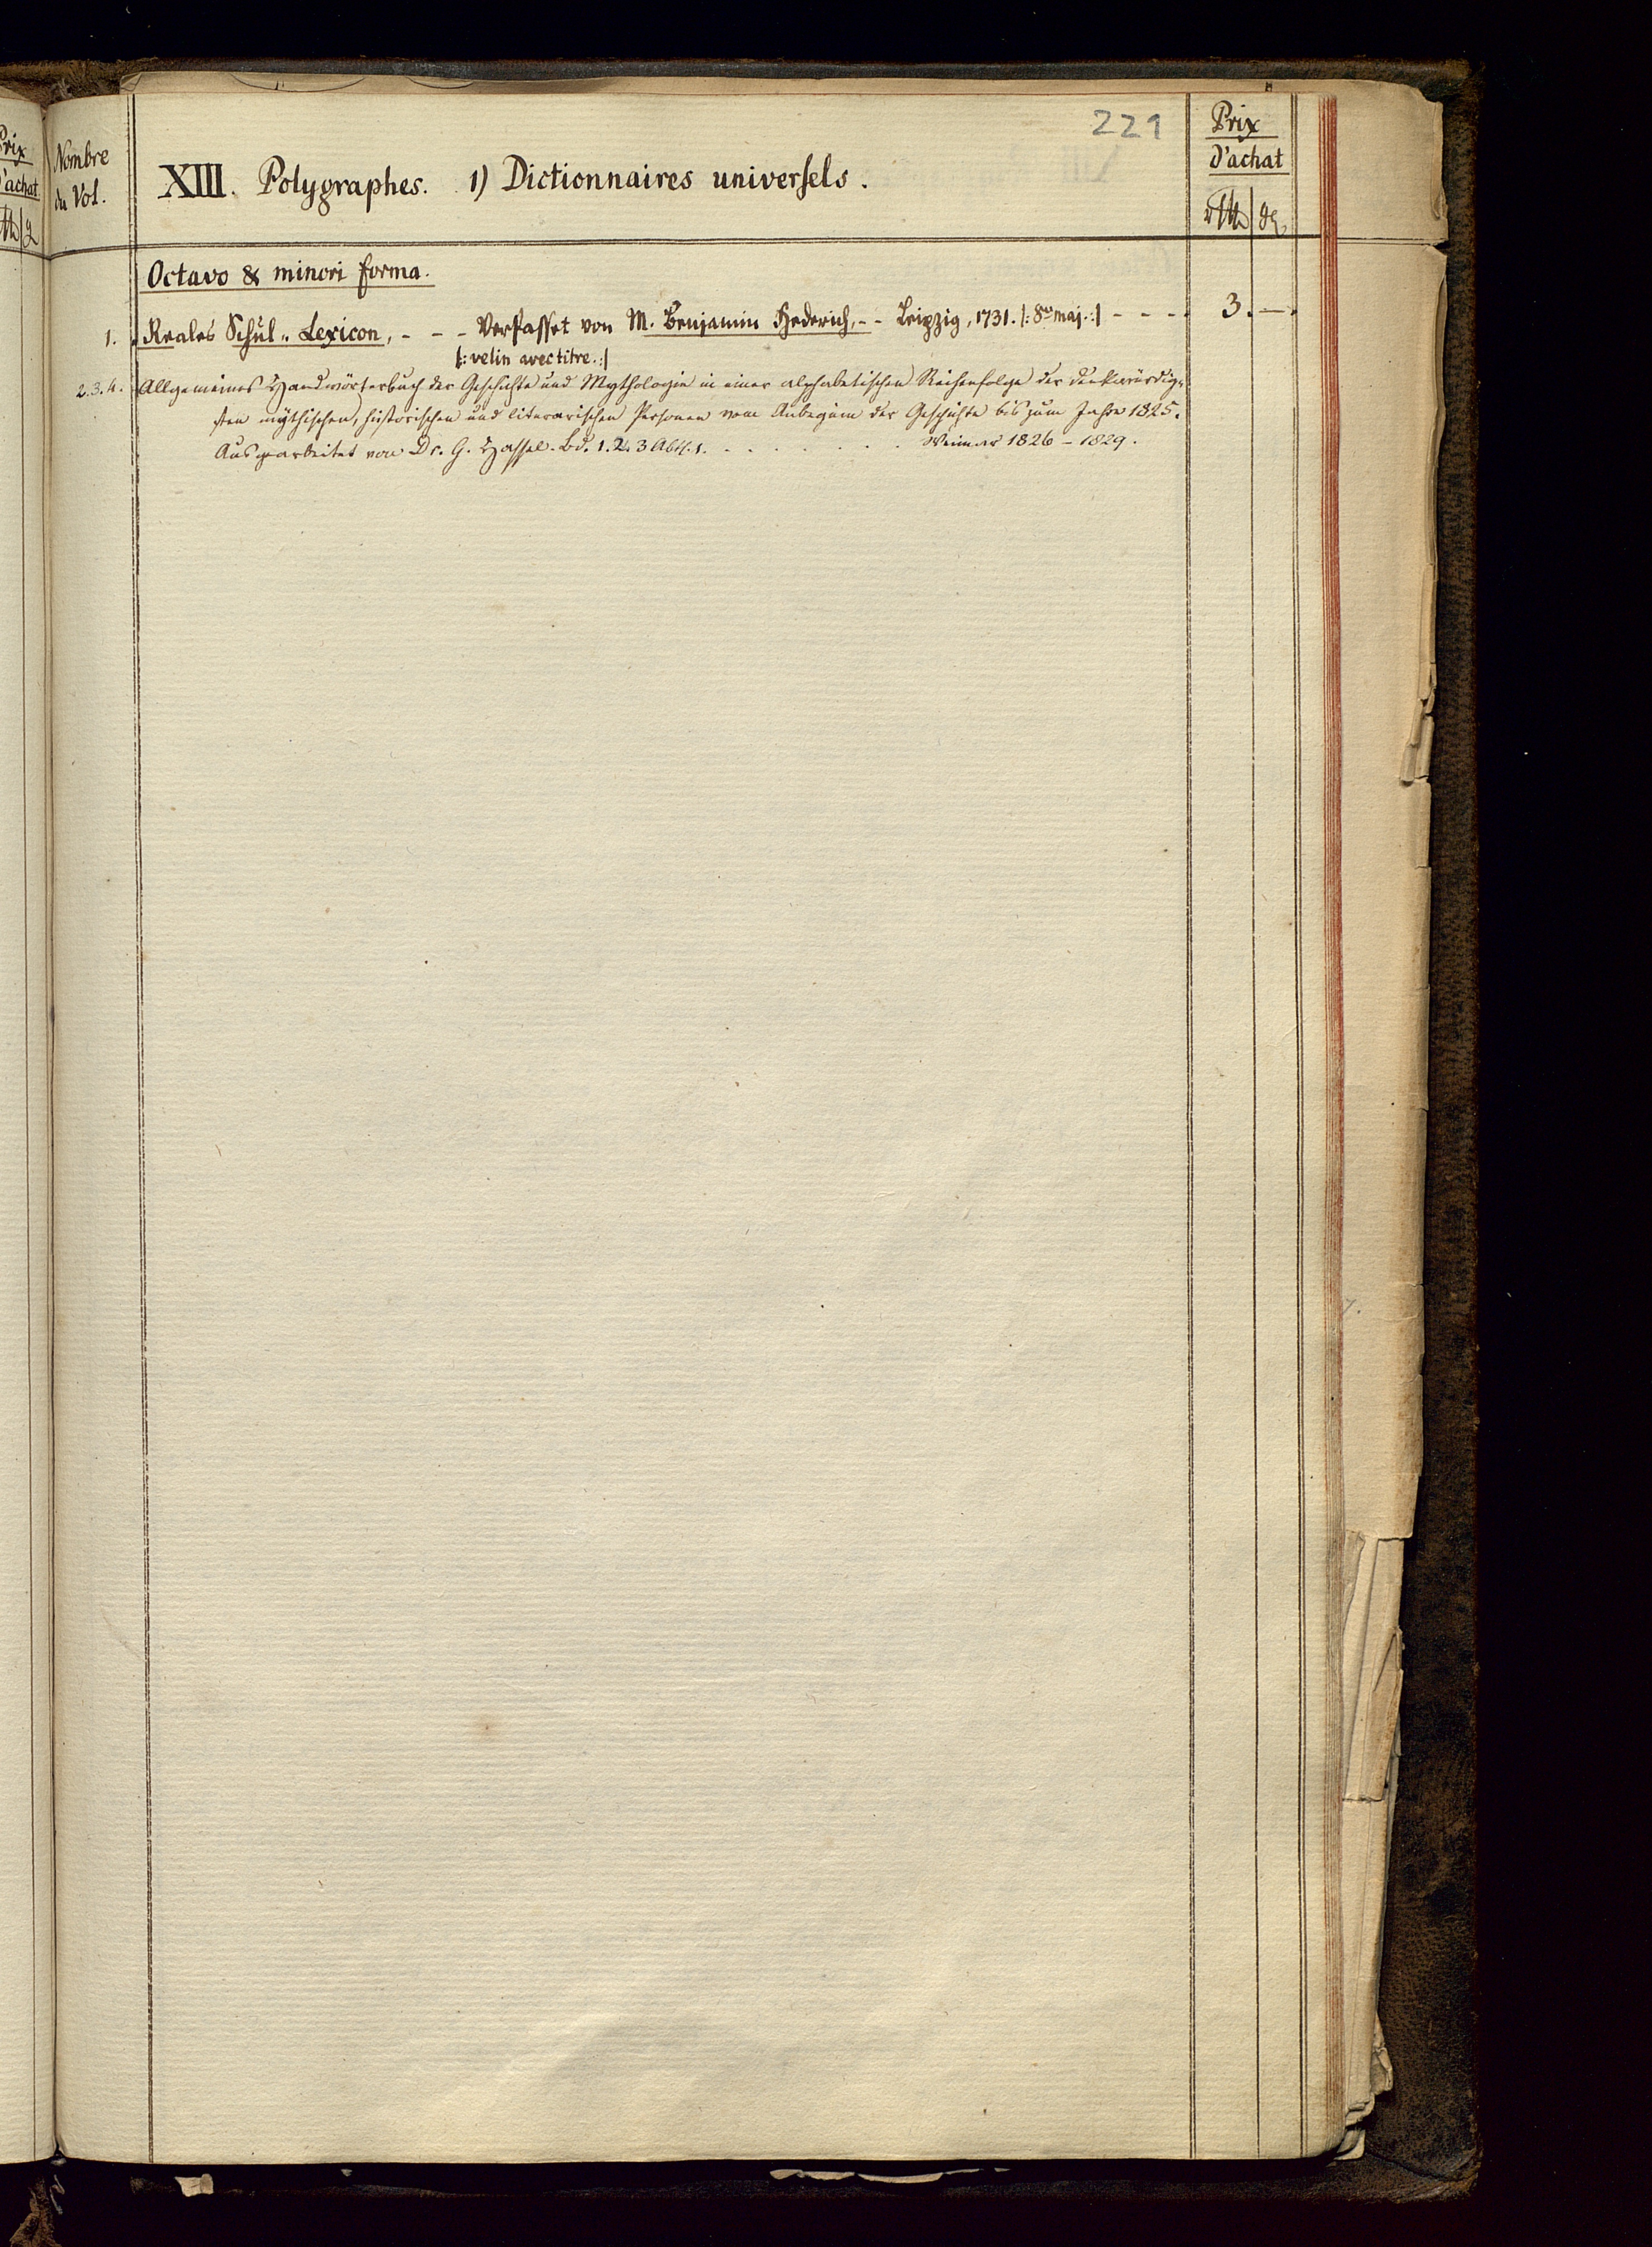 221
Nombre
du Vol.
XIII. Polygraphes. 1) Dictionnaires universels.
Prix
d'achat
Octavo & minori forma.
1. Reales Schul„Lexicon, - - - Verfasset von M. Benjamin Hederich, - - Leipzig, 1731. /: 8vo maj. :/ - - - - 3. —.
/: velin avec titre. :/
2.3.4. Allgemeines Handwörterbuch der Geschichte und Mythologie in einer alphabetischen Reihenfolge der denkwürdig„
sten mythischen, historischen und literarischen Personen vom Anbeginn der Geschichte bis zum Jahre 1825.
Ausgearbeitet von Dr. G. Hassel. Bd. 1. 2. 3 Abth. 1. . . . . . . . Weimar 1826 – 1829.